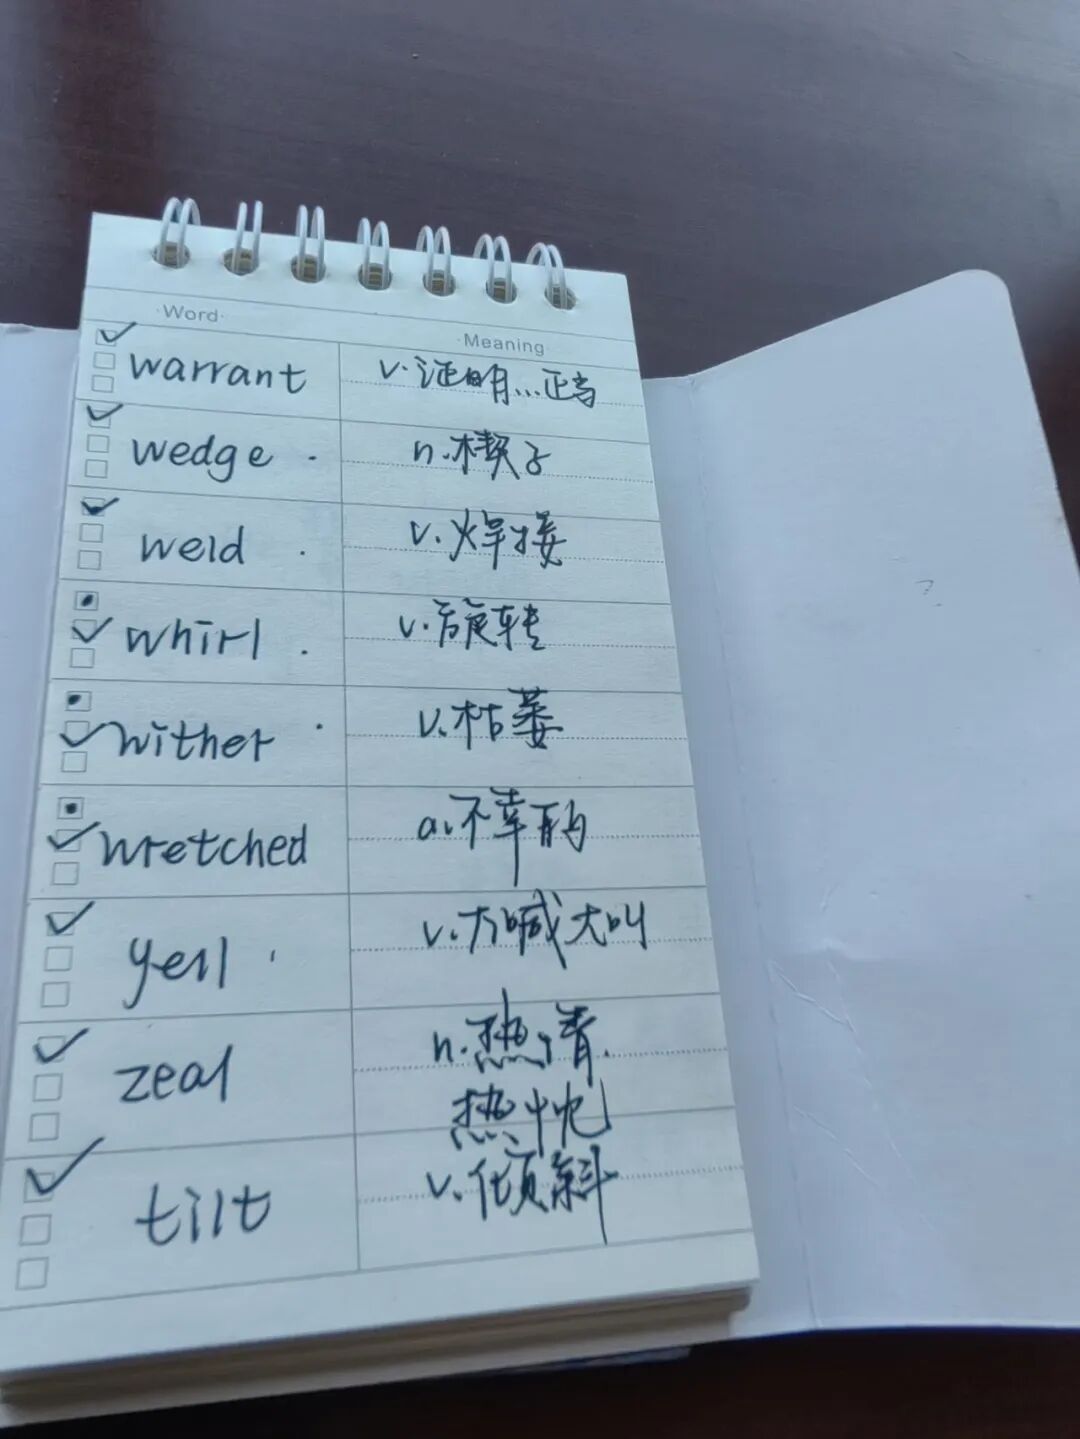 Word Meaning
warrant v.证明...正当
wedge. n.楔子
weld. v.焊接
whirl. v.旋转
wither. v.枯萎
wretched a.不幸的
yell. v.大喊大叫
zeal n.热情.
热忱
tilt v.倾斜